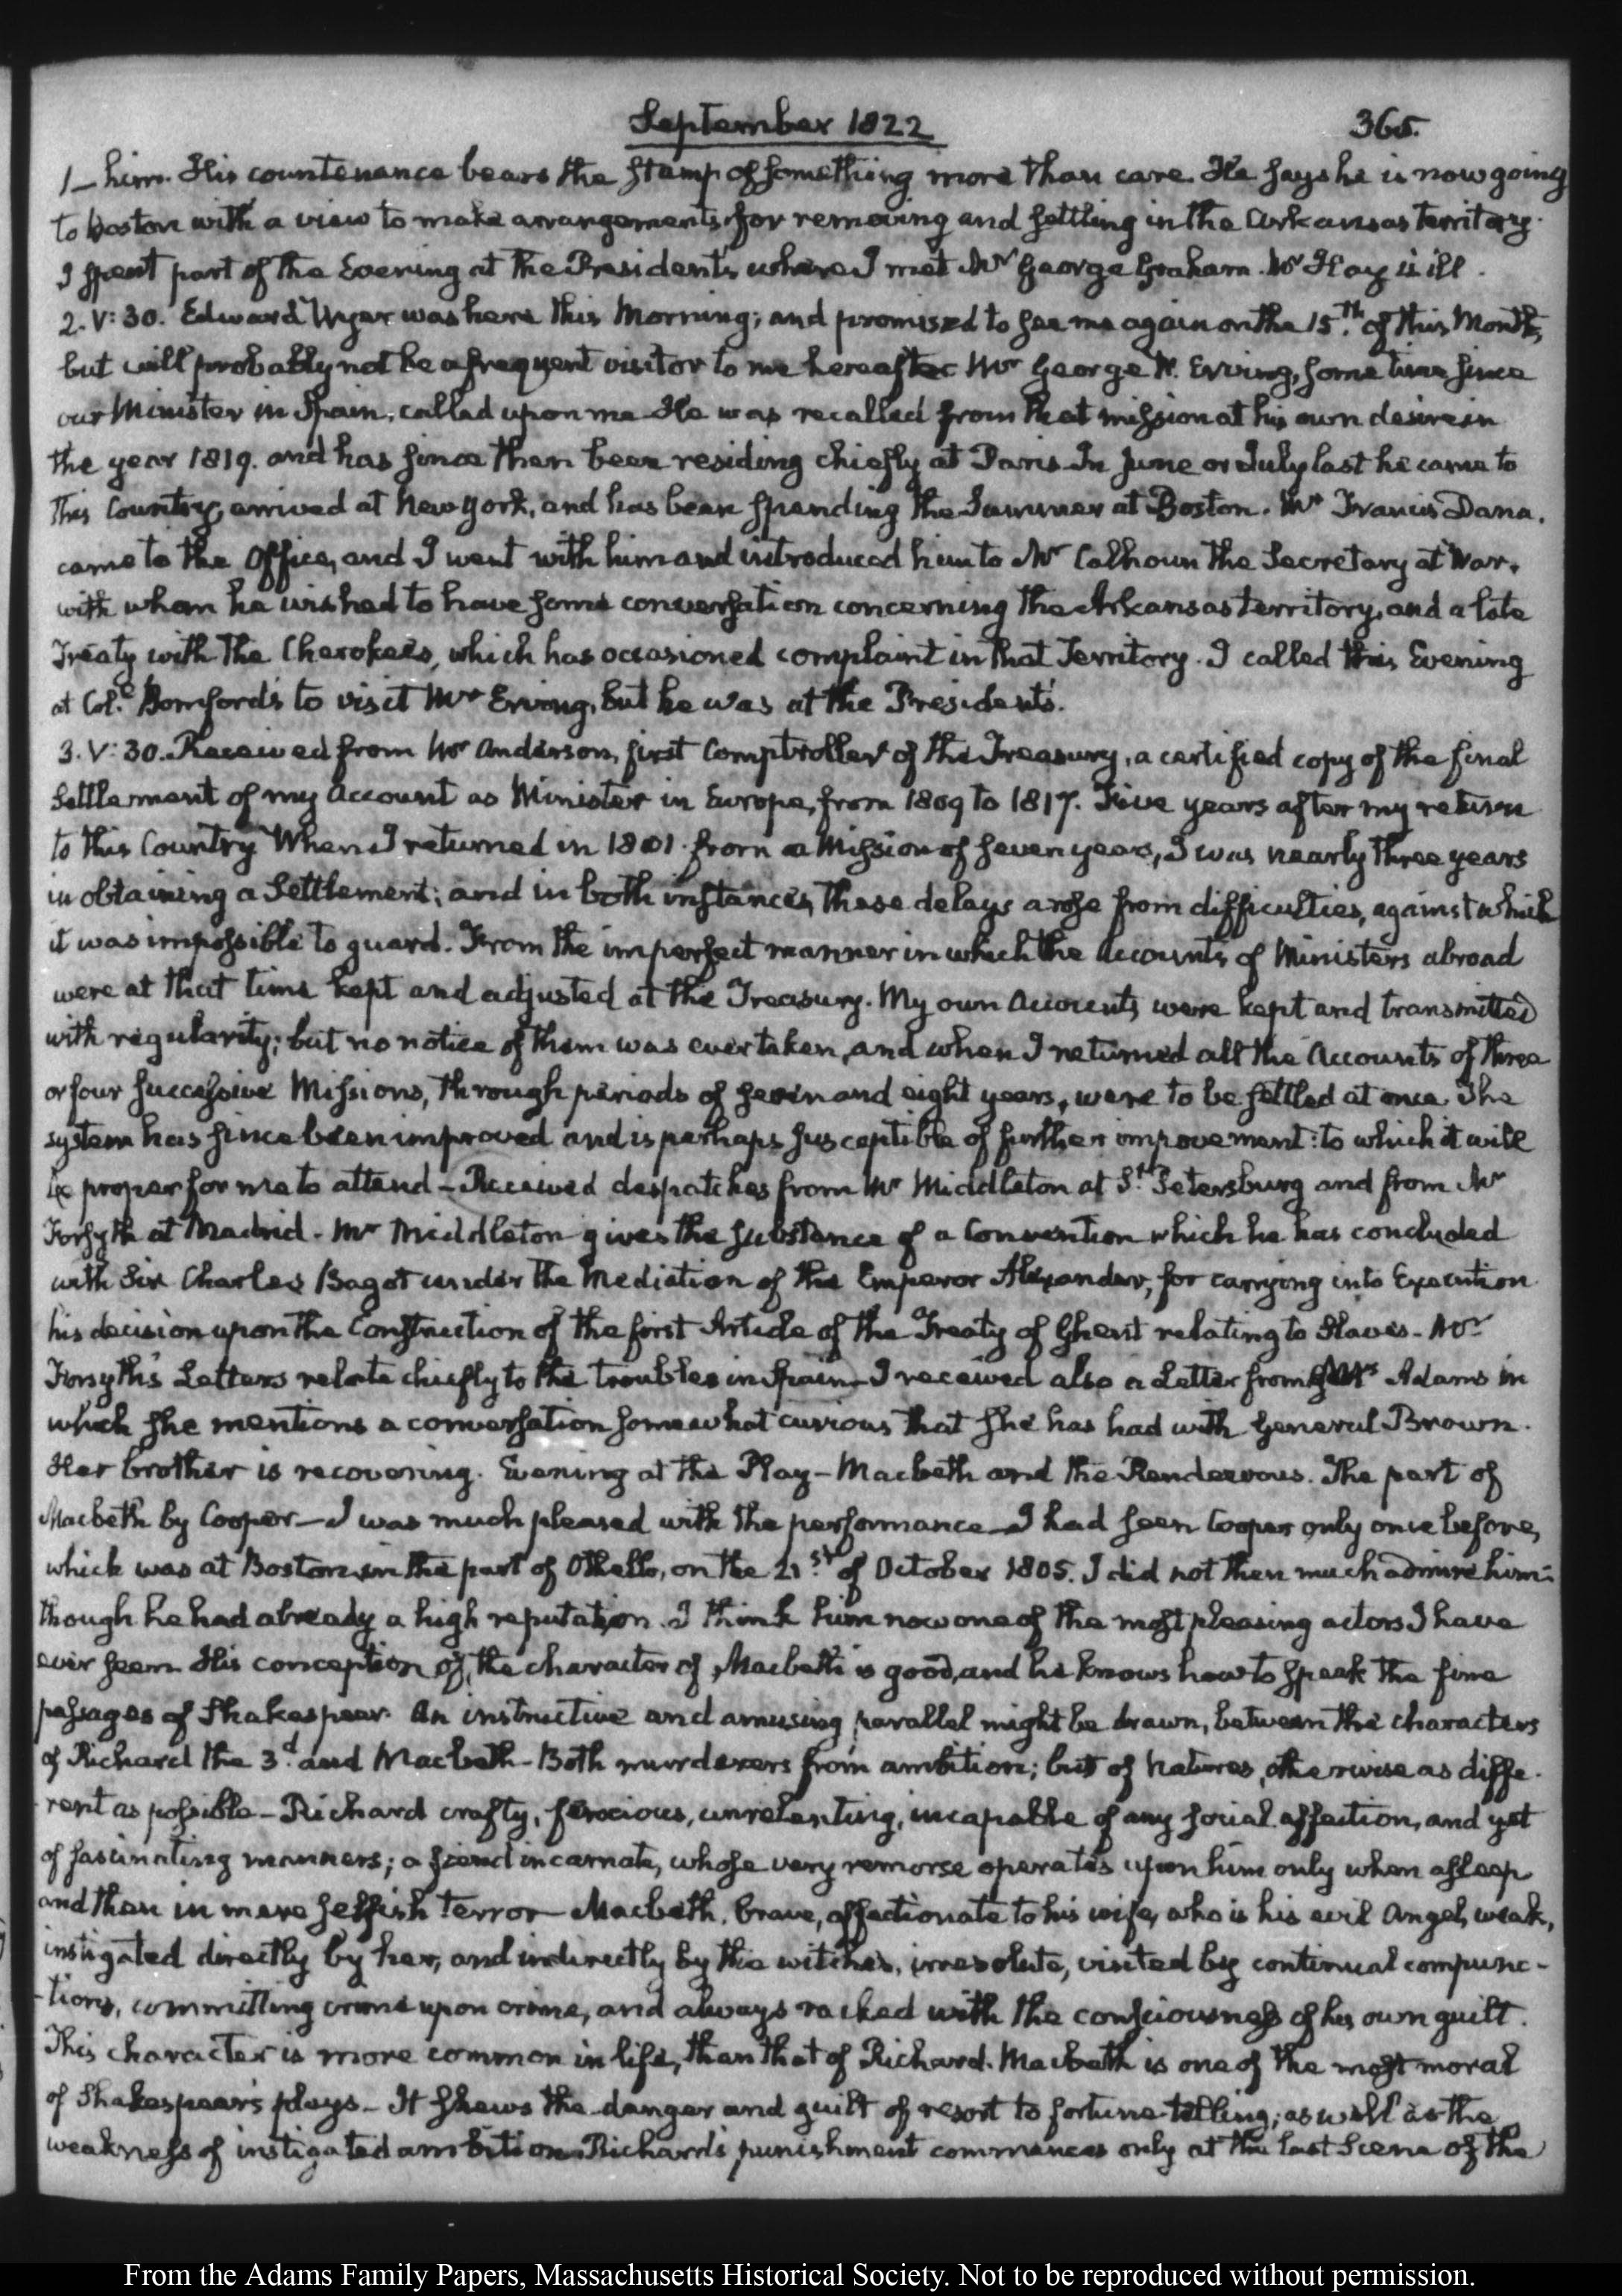 September 1822 365.
1_ him. His countenance bears the stamp of something more than care. He says he is now going
to Boston with a view to make arrangements for removing and settling in the Arkansas Territory.
I spent part of the Evening at the Presidents, where I met Mr George Graham. Mr Hay is ill.
2. V: 30. Edward Wyer was here this Morning; and promised to see me again on the 15.th of this Month,
but will probably not be a frequent visitor to me hereafter Mr George W. Erving, some time since
our Minister in Spain, called upon me He was recalled from that mission at his own desire in
the year 1819. and has since then been residing chiefly at Paris. In June or July last he came to
this Country, arrived at New York, and has been spending the Summer at Boston. Mr Francis Dana.
came to the Office, and I went with him and introduced him to Mr Calhoun the Secretary at War,
with whom he wished to have some conversation concerning the Arkansas territory, and a late
Treaty with the Cherokees, which has occasioned complaint in that Territory. I called this Evening
at Col.l Bomford's to visit Mr Erving, but he was at the President's.
3. V: 30. Received from Mr Anderson, first Comptroller of the Treasury, a certified copy of the final
Settlement of my Account as Minister in Europe, from 1809 to 1817. Five years after my return
to this Country When I returned in 1801. from a Mission of seven years, I was nearly three years
in obtaining a Settlement; and in both instances, these delays arose from difficulties, against which
it was impossible to guard. From the imperfect manner in which the Accounts of Ministers abroad
were at that time kept and adjusted at the Treasury. My own Accounts were kept and transmitted
with regularity; but no notice of them was ever taken, and when I returned all the Accounts of three
or four successive Missions, through periods of seven and eight years, were to be settled at once. The
system has since been improved and is perhaps susceptible of further improvement: to which it will
be proper for me to attend – Received despatches from Mr Middleton at St. Petersburg and from Mr
Forsyth at Madrid – Mr Middleton gives the substance of a Convention which he has concluded
with Sir Charles Bagot under the Mediation of the Emperor Alexander, for carrying into Execution
his decision upon the Construction of the first Article of the Treaty of Ghent relating to Slaves – Mr
Forsyth's Letters relate chiefly to the troubles in Spain – I received also a Letter from Mrs Adams in
which she mentions a conversation somewhat curious that she has had with General Brown.
Her brother is recovering. Evening at the Play – Macbeth and the Rendezvous. The part of
Macbeth by Cooper – I was much pleased with the performance – I had seen Cooper only once before,
which was at Boston in the part of Othello, on the 21.st of October 1805. I did not then much admire him:
though he had already a high reputation. I think him now one of the most pleasing actors I have
ever seen. His conception of the character of Macbeth is good, and he knows how to speak the fine
passages of Shakespear. An instructive and amusing parallel might be drawn, between the characters
of Richard the 3.d and Macbeth – Both murderers from ambition; but of Natures, otherwise as diffe-
-rent as possible – Richard crafty, ferocious, unrelenting, incapable of any social affection, and yet
of fascinating manners; a fiend incarnate, whose very remorse operates upon him only when asleep
and then in mere selfish terror – Macbeth, brave, affectionate to his wife, who is his evil Angel, weak,
instigated directly by her, and indirectly by the witches, irresolute, visited by continual compunc-
-tions, committing crime upon crime, and always racked with the consciousness of his own guilt.
This character is more common in life, than that of Richard. Macbeth is one of the most moral
of Shakespear's plays – It shews the danger and guilt of resort to fortune-telling; as well as the
weakness of instigated ambition. Richard's punishment commences only at the last Scene of the
From the Adams Family Papers, Massachusetts Historical Society. Not to be reproduced without permission.